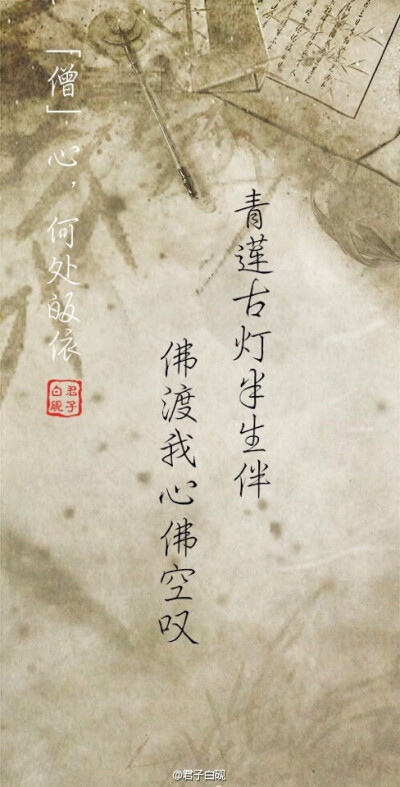 「僧」心，何处皈依
君子白砚
青莲古灯半生伴
佛渡我心佛空叹
@君子白砚